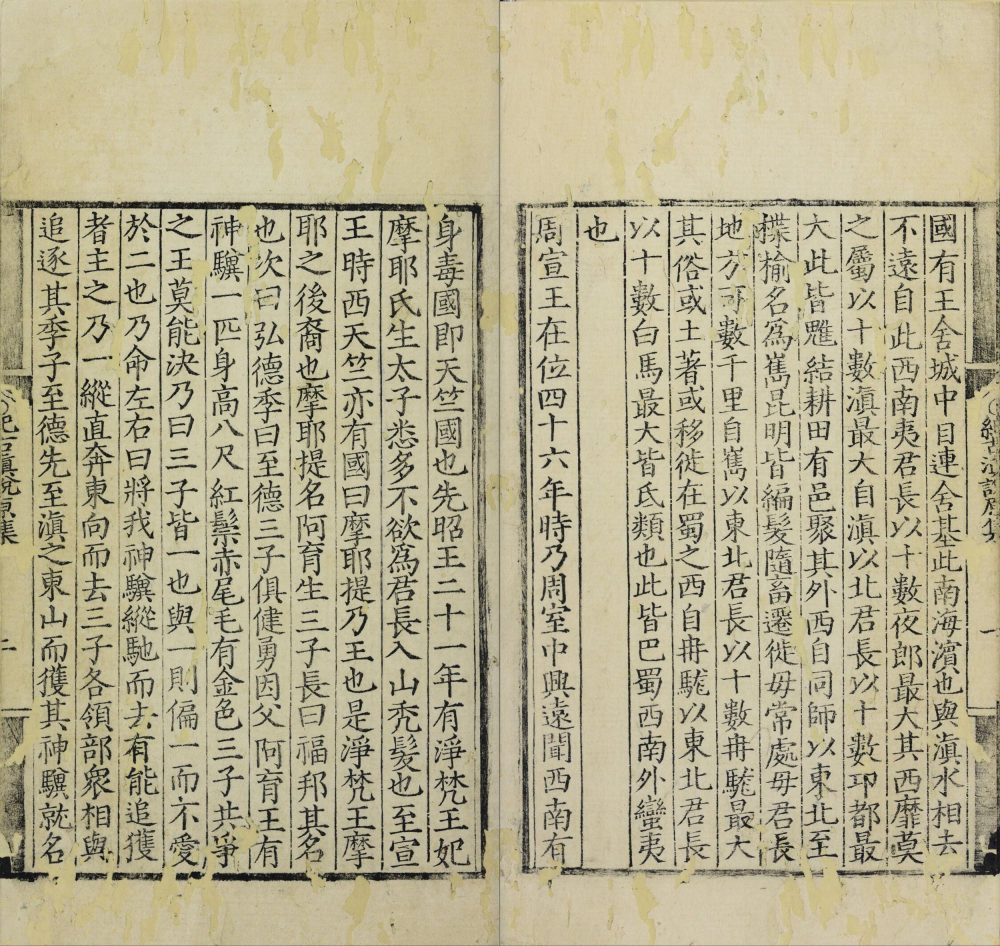 國有王舍城中目連舍基此南海濱也與滇水相去
不遠自此西南夷君長以十數夜郎最大其西靡莫
之屬以十數滇最大自滇以北君長以十數邛都最
大此皆魋結耕田有邑聚其外西自同師以東北至
楪榆名爲嶲昆明皆編髮隨畜遷徙毋常處毋君長
地方可數千里自嶲以東北君長以十數冉駹最大
其俗或土著或移徙在蜀之西自冉駹以東北君長
以十數白馬最大皆氐類也此皆巴蜀西南外蠻夷
也
周宣王在位四十六年時乃周室中興遠聞西南有
身毒國即天竺國也先昭王二十一年有淨梵王妃
摩耶氏生太子悉多不欲爲君長入山禿髮也至宣
王時西天竺亦有國曰摩耶提乃王也是淨梵王摩
耶之後裔也摩耶提名阿育生三子長曰福邦其名
也次曰弘德季曰至德三子俱健勇因父阿育王有
神驥一匹身高八尺紅鬃赤尾毛有金色三子共爭
之王莫能決乃曰三子皆一也與一則偏一而不愛
於二也乃命左右曰將我神驥縱馳而去有能追獲
者主之乃一縱直奔東向而去三子各領部衆相與
追逐其季子至德先至滇之東山而獲其神驥就名
紀古滇說原集